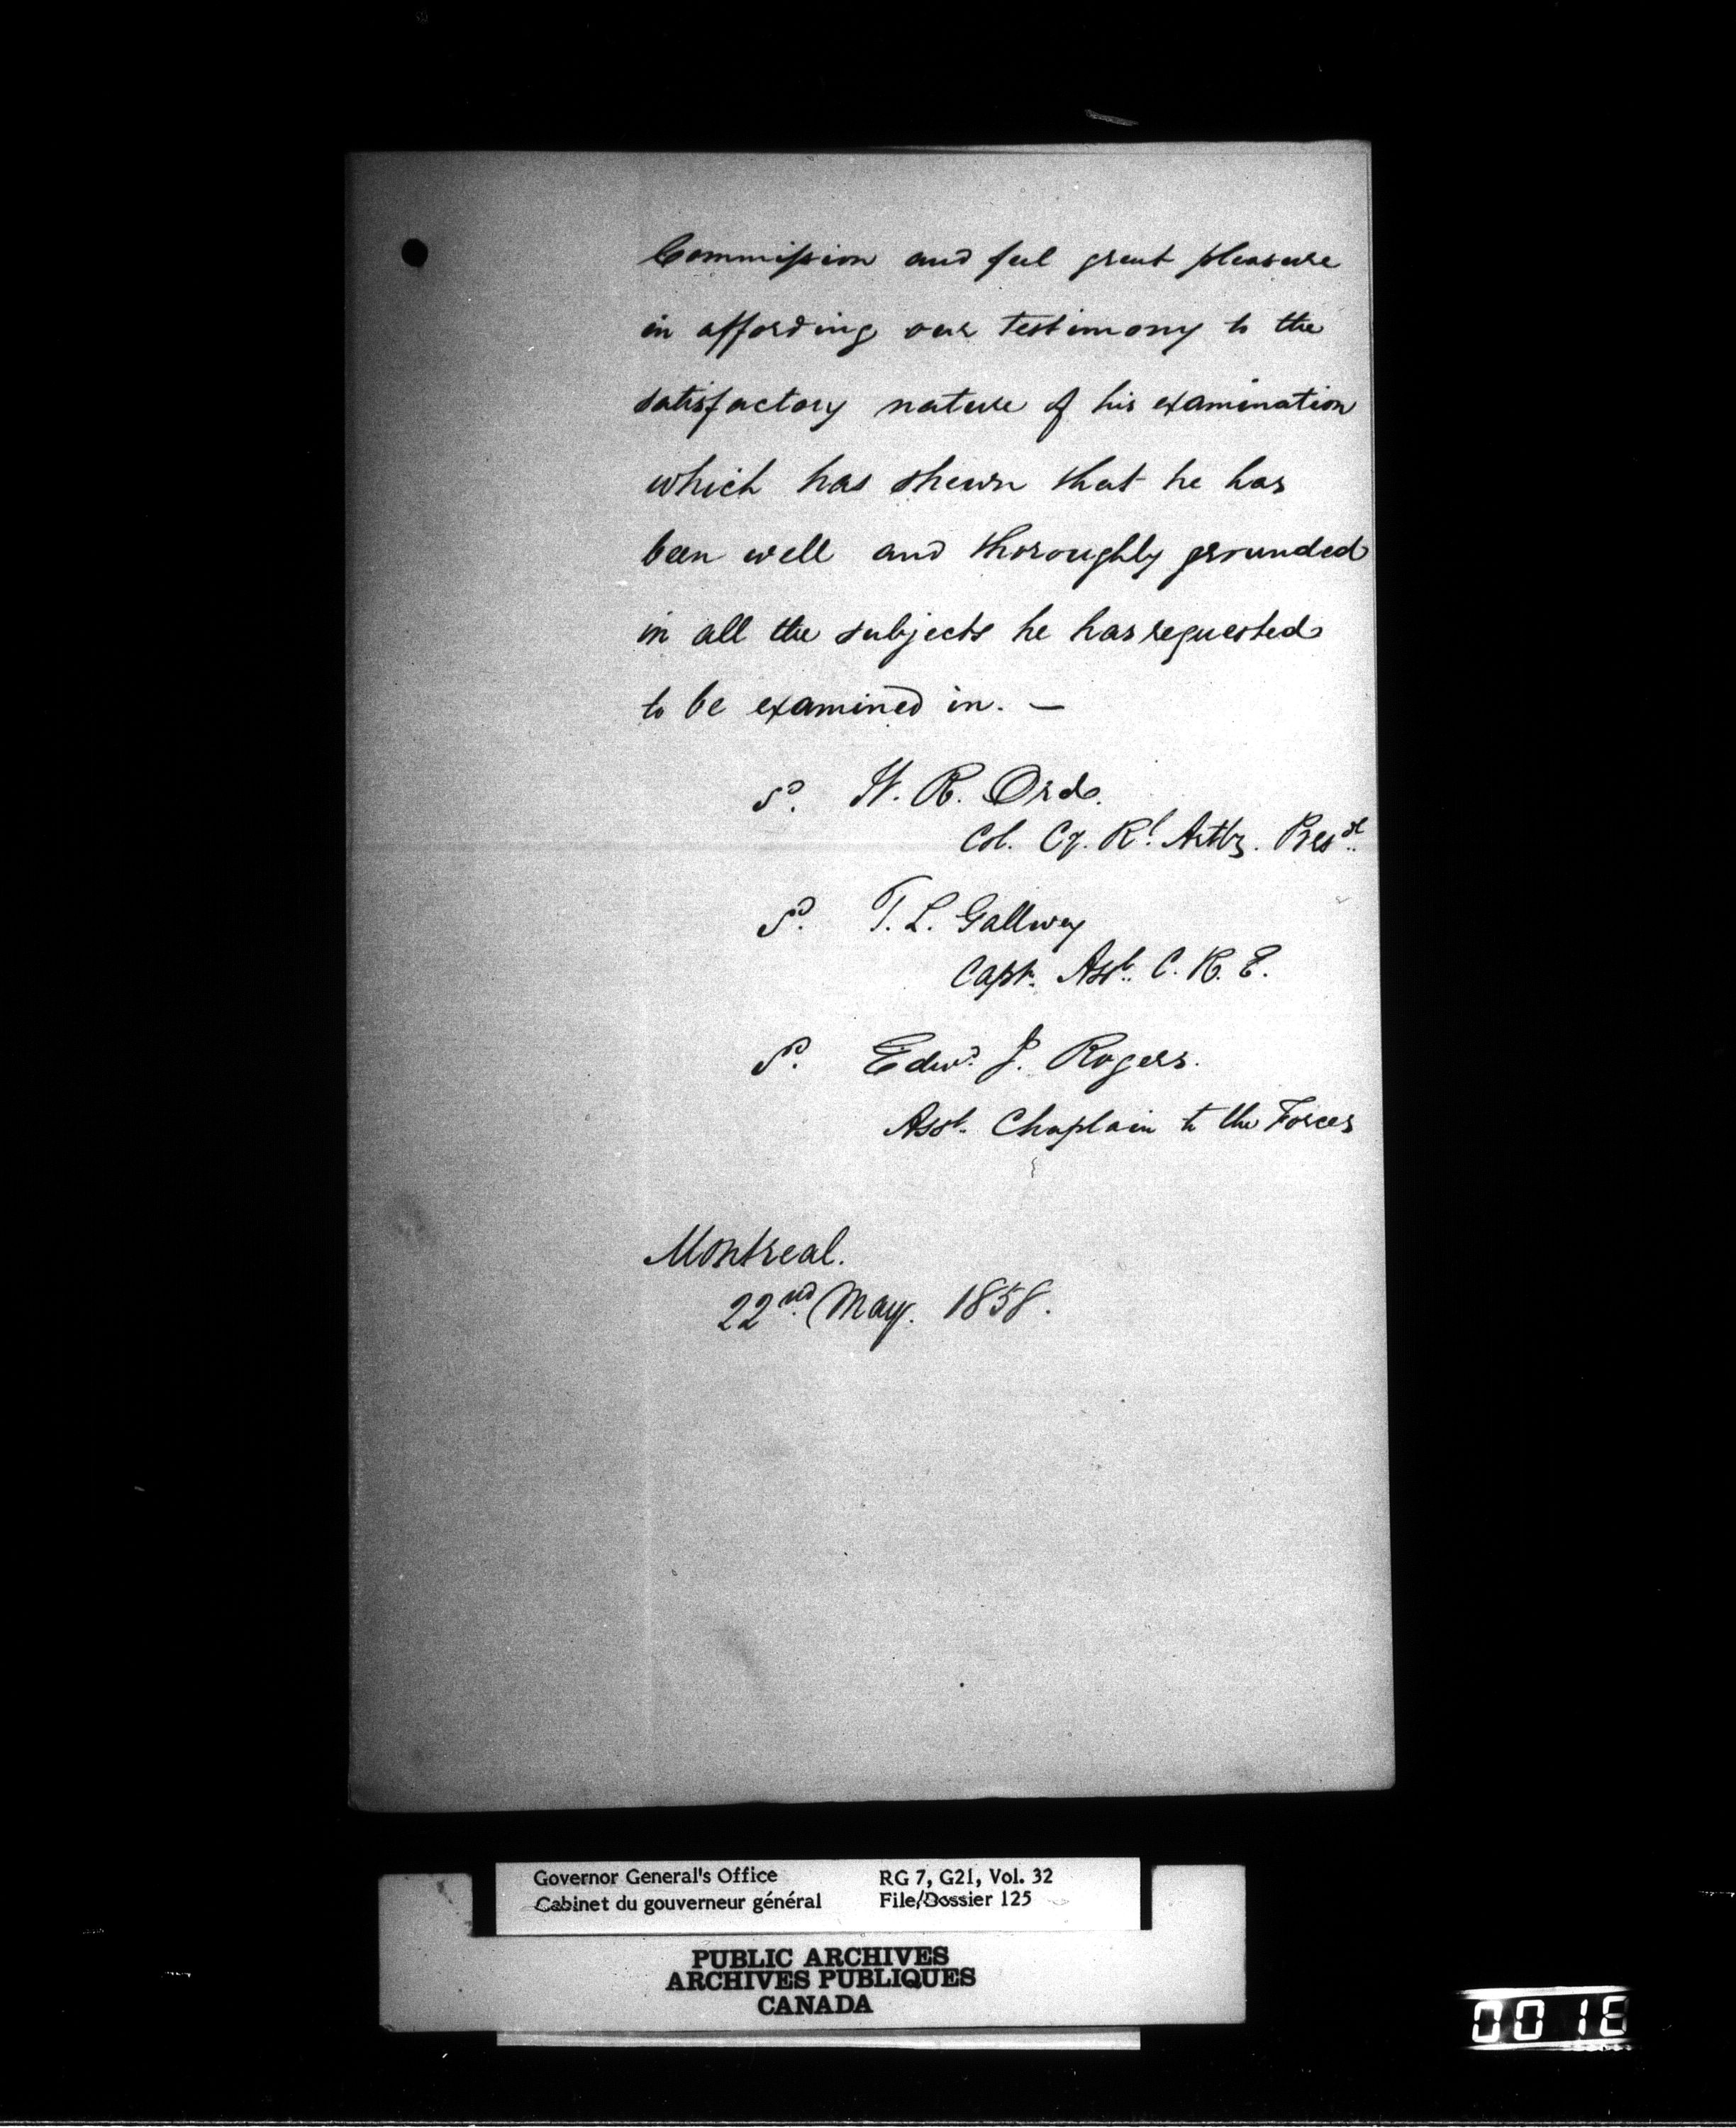 Commission and feel great pleasure
in affording our testimony to the
satisfactory nature of his examination
which has shewn that he has
been well and thoroughly grounded
in all the subjects he has requested
to be examined in. —
Sd. W. R. Ord.
Col. Cg. Rl. Arty. Presdt.
Sd. T. L. Gallwey
Capt. Asst. C. R. E.
Sd. Edwd. J. Rogers.
Asst. Chaplain to the Forces
Montreal.
22nd. May. 1858.
Governor General's Office RG 7, G21, Vol. 32
Cabinet du gouverneur général File/Dossier 125
PUBLIC ARCHIVES
ARCHIVES PUBLIQUES
CANADA